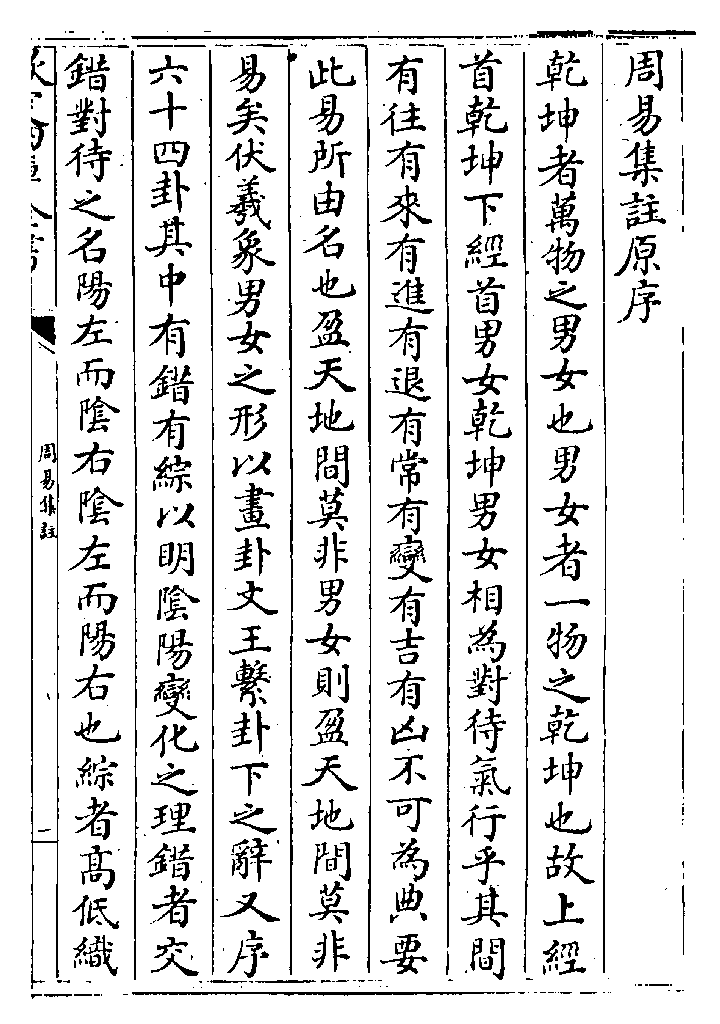 周易集註原序
乾坤者萬物之男女也男女者一物之乾坤也故上經
首乾坤下經首男女乾坤男女相為對待氣行乎其間
有往有來有進有退有常有變有吉有凶不可為典要
此易所由名也盈天地間莫非男女則盈天地間莫非
易矣伏羲象男女之形以畫卦文王繫卦下之辭又序
六十四卦其中有錯有綜以明陰陽變化之理錯者交
錯對待之名陽左而陰右陰左而陽右也綜者髙低織
周易集註
一